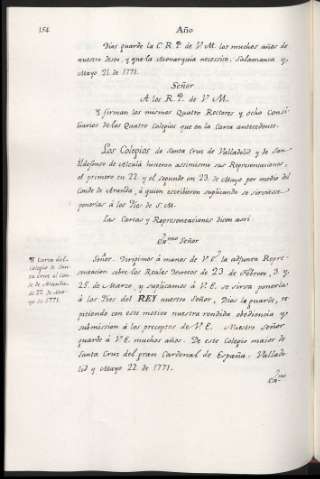 154 Año
Dias guarde la C. R. P.ª de V. M. los muchos años de
nuestro deseo, y que la Monarquia necesita. Salamanca y
Mayo 21 de 1771.
Señor
A los R.s P.s de V. M.
¶ firman los mismos Quatro Rectores y ocho Consi-
liarios de los Quatro Colegios que en la Carta antecedente.
Los Colegios de Santa Cruz de Valladolid y de San
Ildefonso de Alcalá hicieron assimismo sus Representaciones,
el primero en 22. y el segundo en 23. de Mayo por medio del
Conde de Aranda, á quien escribieron suplicando se sirviesse
ponerlas á los Pies de S. M.
Las Cartas y Representaciones dicen assi.
Ex.mo Señor
¶ Carta del
Colegio de San-
ta Cruz al Con-
de de Aranda,
de 22. de Ma-
yo de 1771.
Señor. Dirigimos á manos de V. E.ª la adjunta Repre-
sentacion sobre los Reales Decretos de 23. de Febrero, 3. y
25. de Marzo, y suplicamos á V. E. se sirva ponerla
á los Pies del REY nuestro Señor, Dios le guarde, re-
pitiendo con este motivo nuestra rendida obediencia y
submission á los preceptos de V. E. Nuestro Señor
guarde á V. E. muchos años. De este Colegio maior de
Santa Cruz del gran Cardenal de España. Vallado-
lid y Mayo 22. de 1771.
Ex.mo